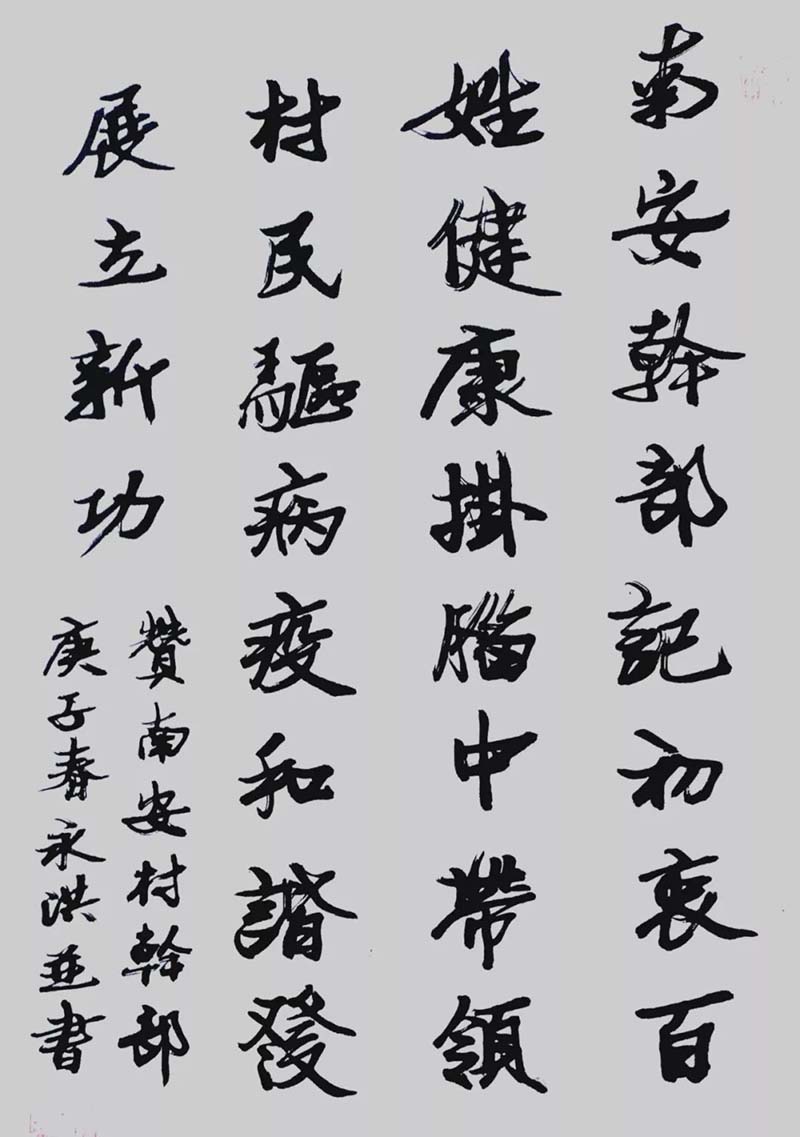 南安幹部記初衷百
姓健康掛腦中帶領
村民驅病疫和諧發
展立新功
贊南安村幹部
庚子春永洪並書